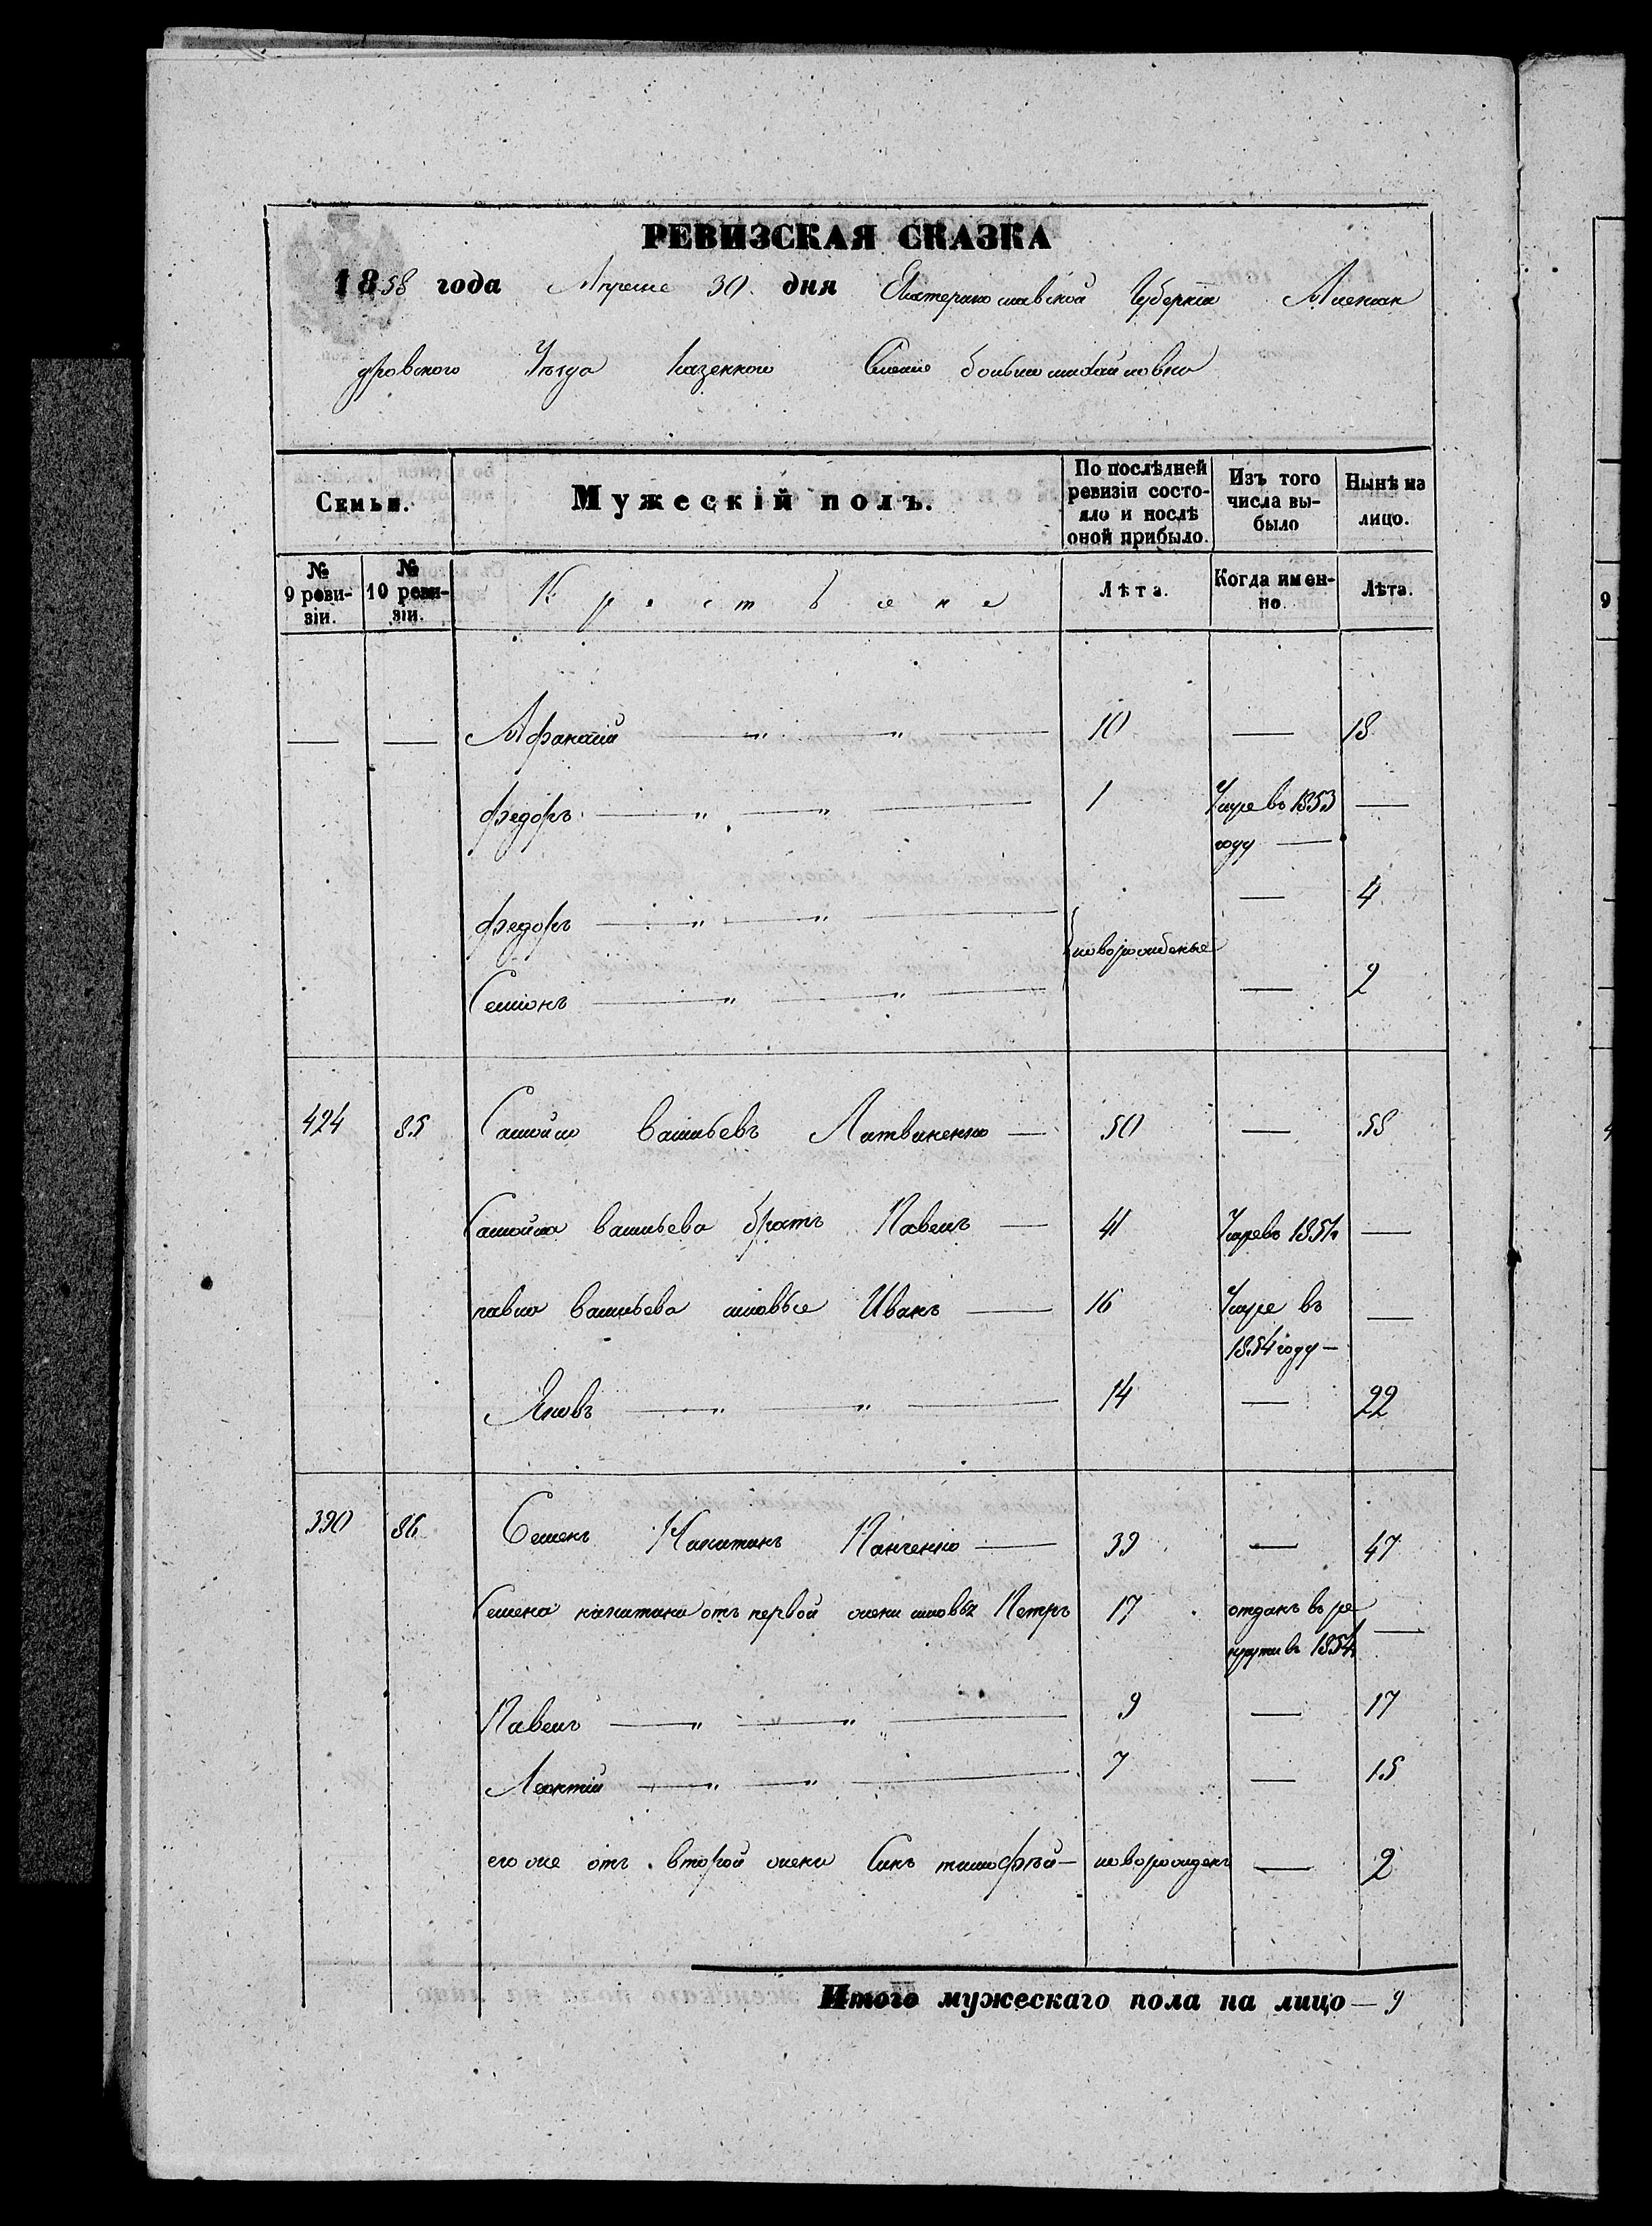 РЕВИЗСКАЯ СКАЗКА
1858 года Апреля 30 дня Екатеринославской Губернiи Алексан
дровского Уѣзда казенного Селенiя большемихайловки
Семьи. Мужескiй полъ. По послѣдней ревизiи состояло и послѣ оной прибыло. Изъ того числа выбыло Нынѣ на лицо.
№ 9 ревизiи. № 10 ревизiи. Крестьяне Лѣта. Когда именно. Лѣта.
— — Афанасiй — „ — „ — 10 — 18
Федоръ — „ — „ — 1 Умре въ 1853 —
году —
Федоръ — „ — „ — — 4
новорожденые
Семiонъ — „ — „ — — 2
424 85 Самойло Васильевъ Литвиненко — 50 — 58
Самойла Васильева братъ Павелъ — 41 Умре въ 1851 —
павла Васильева сыновье Иванъ — 16 Умре въ —
1854 году —
Яковъ — „ — „ — 14 — 22
390 86 Семенъ Капитинъ Панченко — 39 — 47
Семена капитина отъ первой жени сыновья Петръ 17 отданъ въ ре —
круты въ 1854
Павелъ — „ — „ — 9 — 17
Леонтiй — „ — „ — 7 — 15
его же отъ второй жени Синъ тимофѣй — новорожденъ — 2
Итого мужескаго пола на лицо — 9